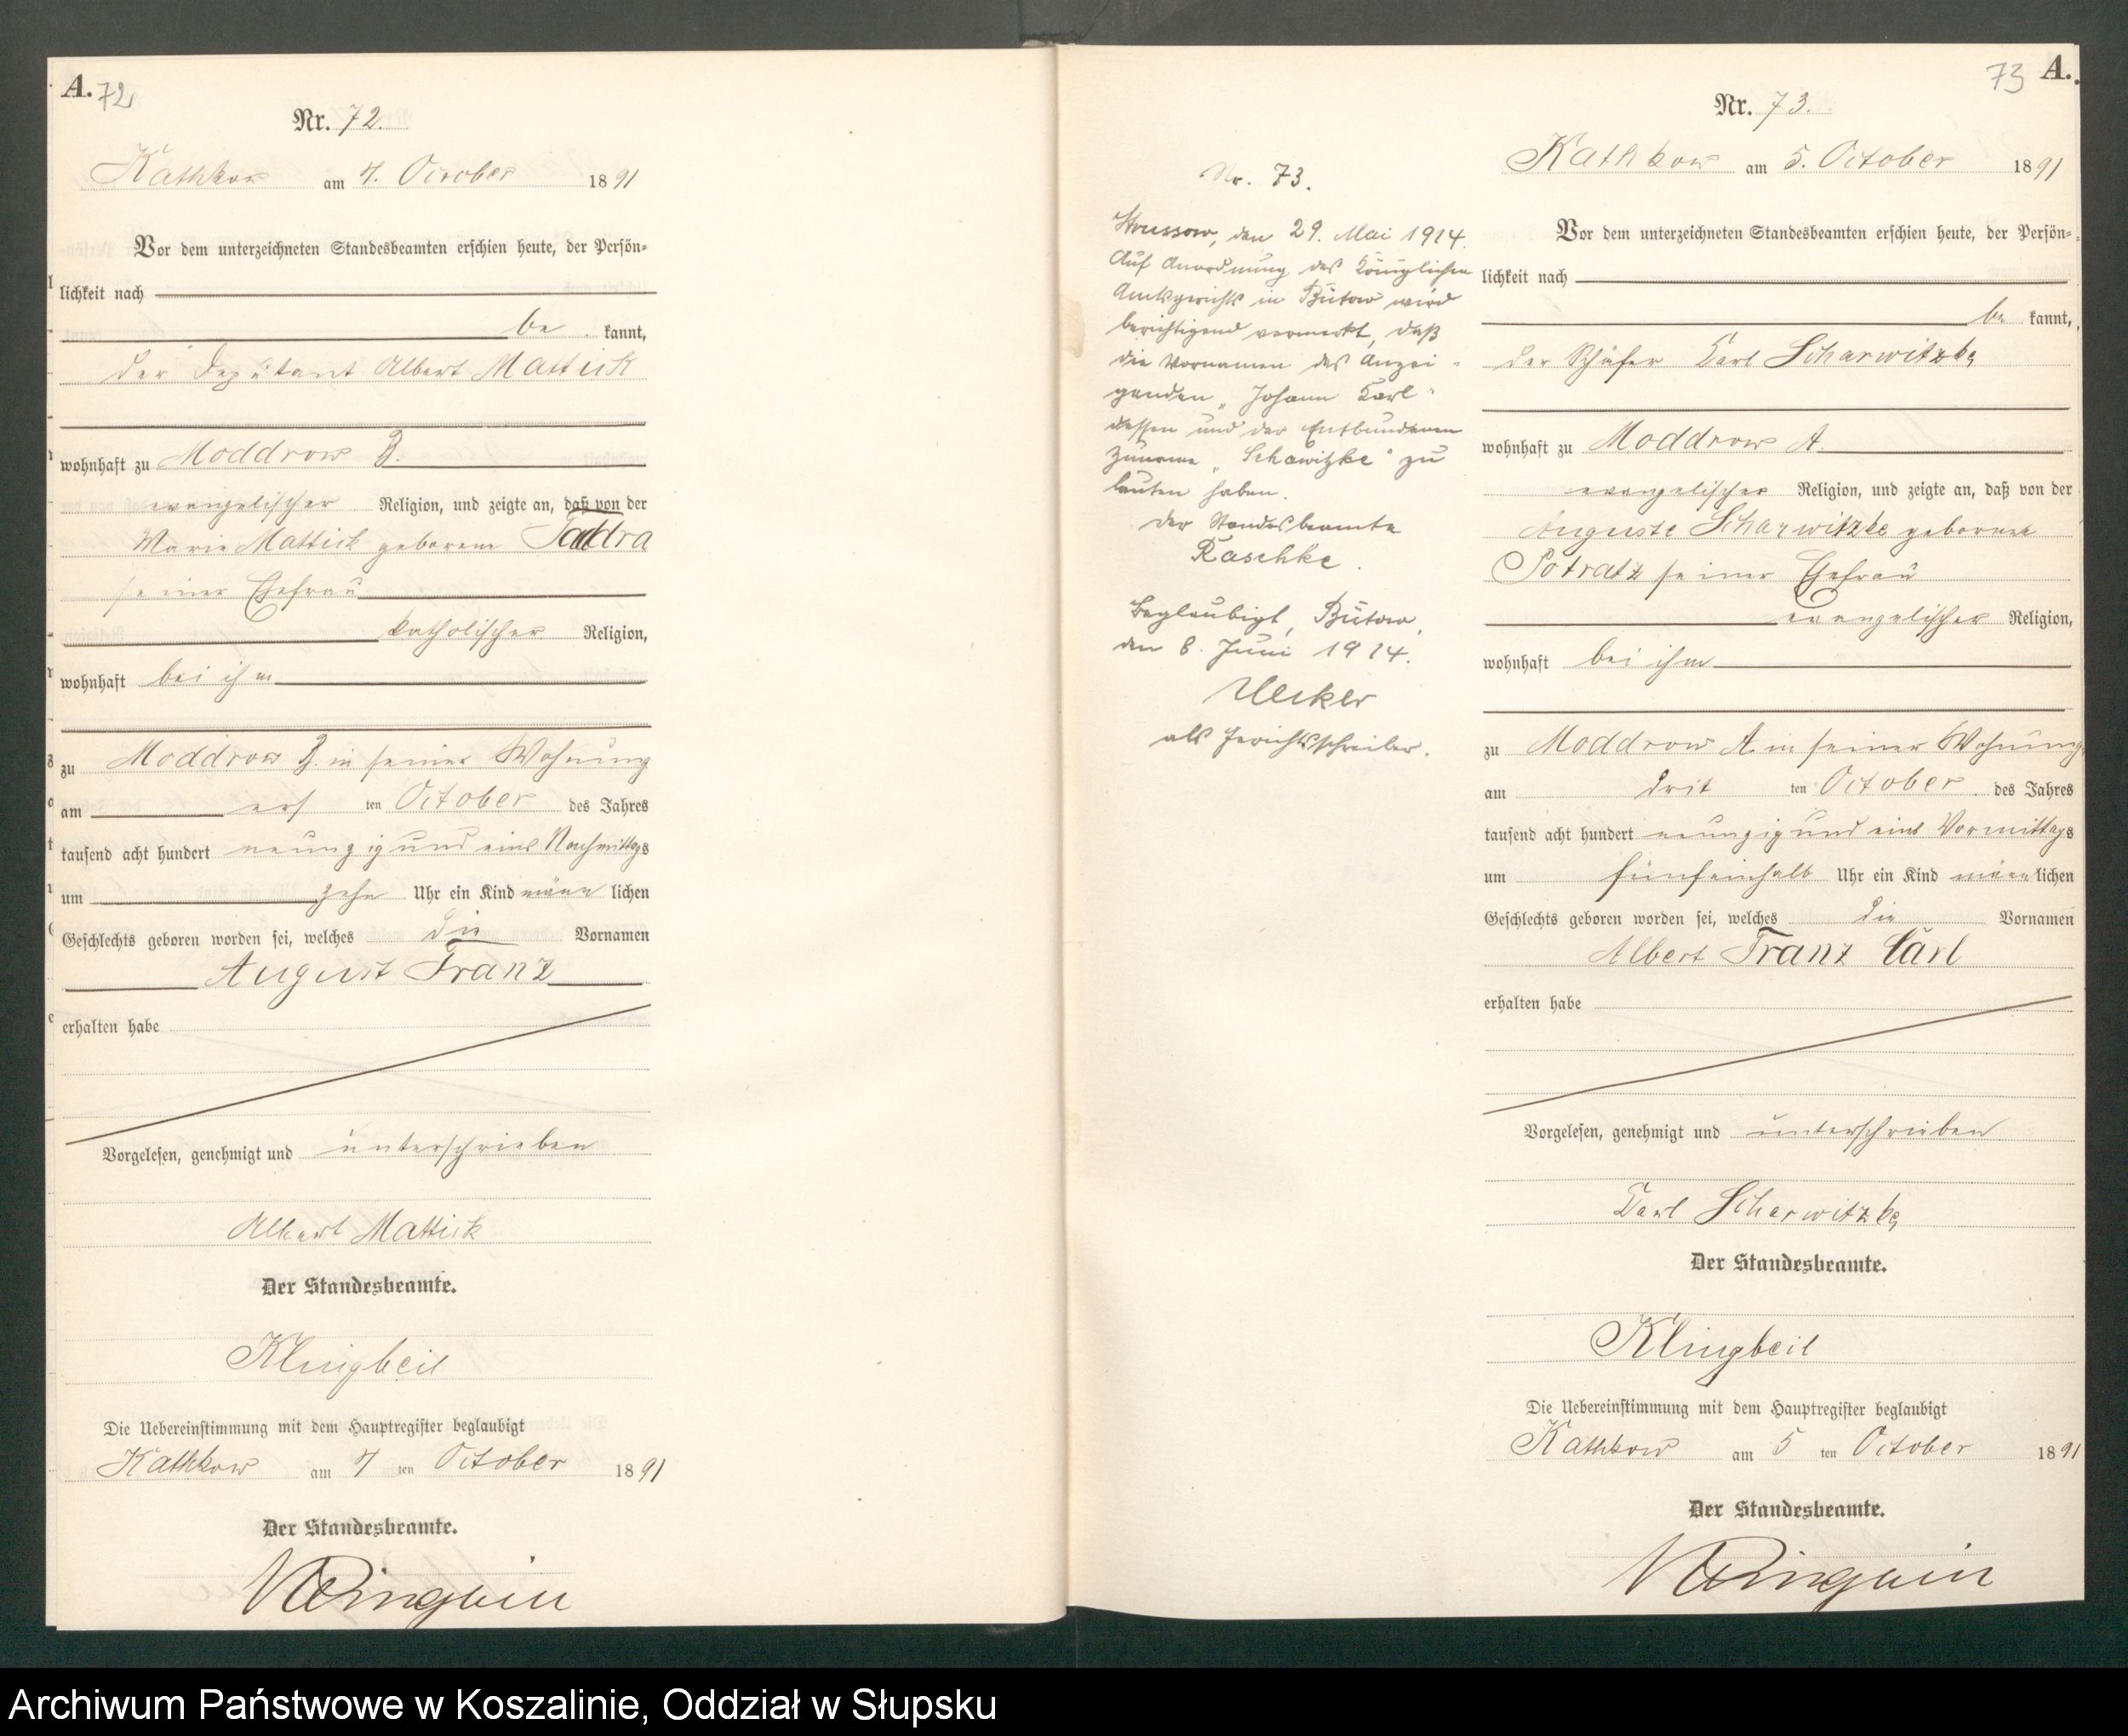 A. 72
Nr. 72.
Kathkow am 4. October 1891
Vor dem unterzeichneten Standesbeamten erschien heute, der Persön-
lichkeit nach
be kannt,
der Deputant Albert Mattick
wohnhaft zu Moddrow B.
evangelischer Religion, und zeigte an, daß von der
Marie Mattick geborene
seiner Ehefrau
katholischer Religion,
wohnhaft bei ihm
zu Moddrow B. in seiner Wohnung
am ers ten October des Jahres
tausend acht hundert neunzig und eins Nachmittags
um zehn Uhr ein Kind männlichen
Geschlechts geboren worden sei, welches die Vornamen
August Franz
erhalten habe
Vorgelesen, genehmigt und unterschrieben
Albert Mattick
Der Standesbeamte.
Klingbeil
Die Uebereinstimmung mit dem Hauptregister beglaubigt
Kathkow am 4 ten October 1891
Der Standesbeamte.
Klingbeil
Nr. 73.
Strussow, den 29. Mai 1914.
Auf Anordnung des Königlichen
Amtsgerichts in Bütow wird
berichtigend vermerkt, daß
die Vornamen des Anzei-
genden „Johann Karl"
dessen und der Entbundenen
Zuname „Schawitzke" zu
lauten haben.
Der Standesbeamte
Raschke.
Beglaubigt, Bütow,
den 8. Juni 1914.
Uecker
als Gerichtsschreiber.
73 A.
Nr. 73.
Kathkow am 5. October 1891
Vor dem unterzeichneten Standesbeamten erschien heute, der Persön-
lichkeit nach
be kannt,
der Schäfer Karl Scharwitzke
wohnhaft zu Moddrow A.
evangelischer Religion, und zeigte an, daß von der
Auguste Scharwitzke geborene
Potratz seiner Ehefrau
evangelischer Religion,
wohnhaft bei ihm
zu Moddrow A. in seiner Wohnung
am drit ten October des Jahres
tausend acht hundert neunzig und eins Vormittags
um fünfeinhalb Uhr ein Kind männlichen
Geschlechts geboren worden sei, welches die Vornamen
Albert Franz Carl
erhalten habe
Vorgelesen, genehmigt und unterschrieben
Karl Scharwitzke
Der Standesbeamte.
Klingbeil
Die Uebereinstimmung mit dem Hauptregister beglaubigt
Kathkow am 5 ten October 1891
Der Standesbeamte.
Klingbeil
Archiwum Państwowe w Koszalinie, Oddział w Słupsku